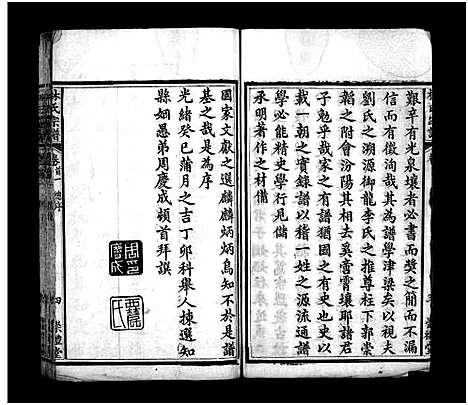 艱辛有光泉壤者必書而奬之簡而不漏
信而有徵洵哉其為譜學津梁矣以視夫
劉氏之溯源御龍李氏之推尊柱下郭崇
韜之附會汾陽其相去奚啻霄壤耶譜君
子勉乎哉家之有譜猶國之有史也有史
以載一朝之實錄譜以稽一姓之源流通譜
學必能精史學行見儲
承明著作之材備
國家文獻之選麟麟炳炳烏知不於是譜
基之哉是為序
光緒癸巳蒲月之吉丁卯科舉人揀選知
縣姻愚弟周慶成頓首拜譔
林氏宗譜
卷首
四